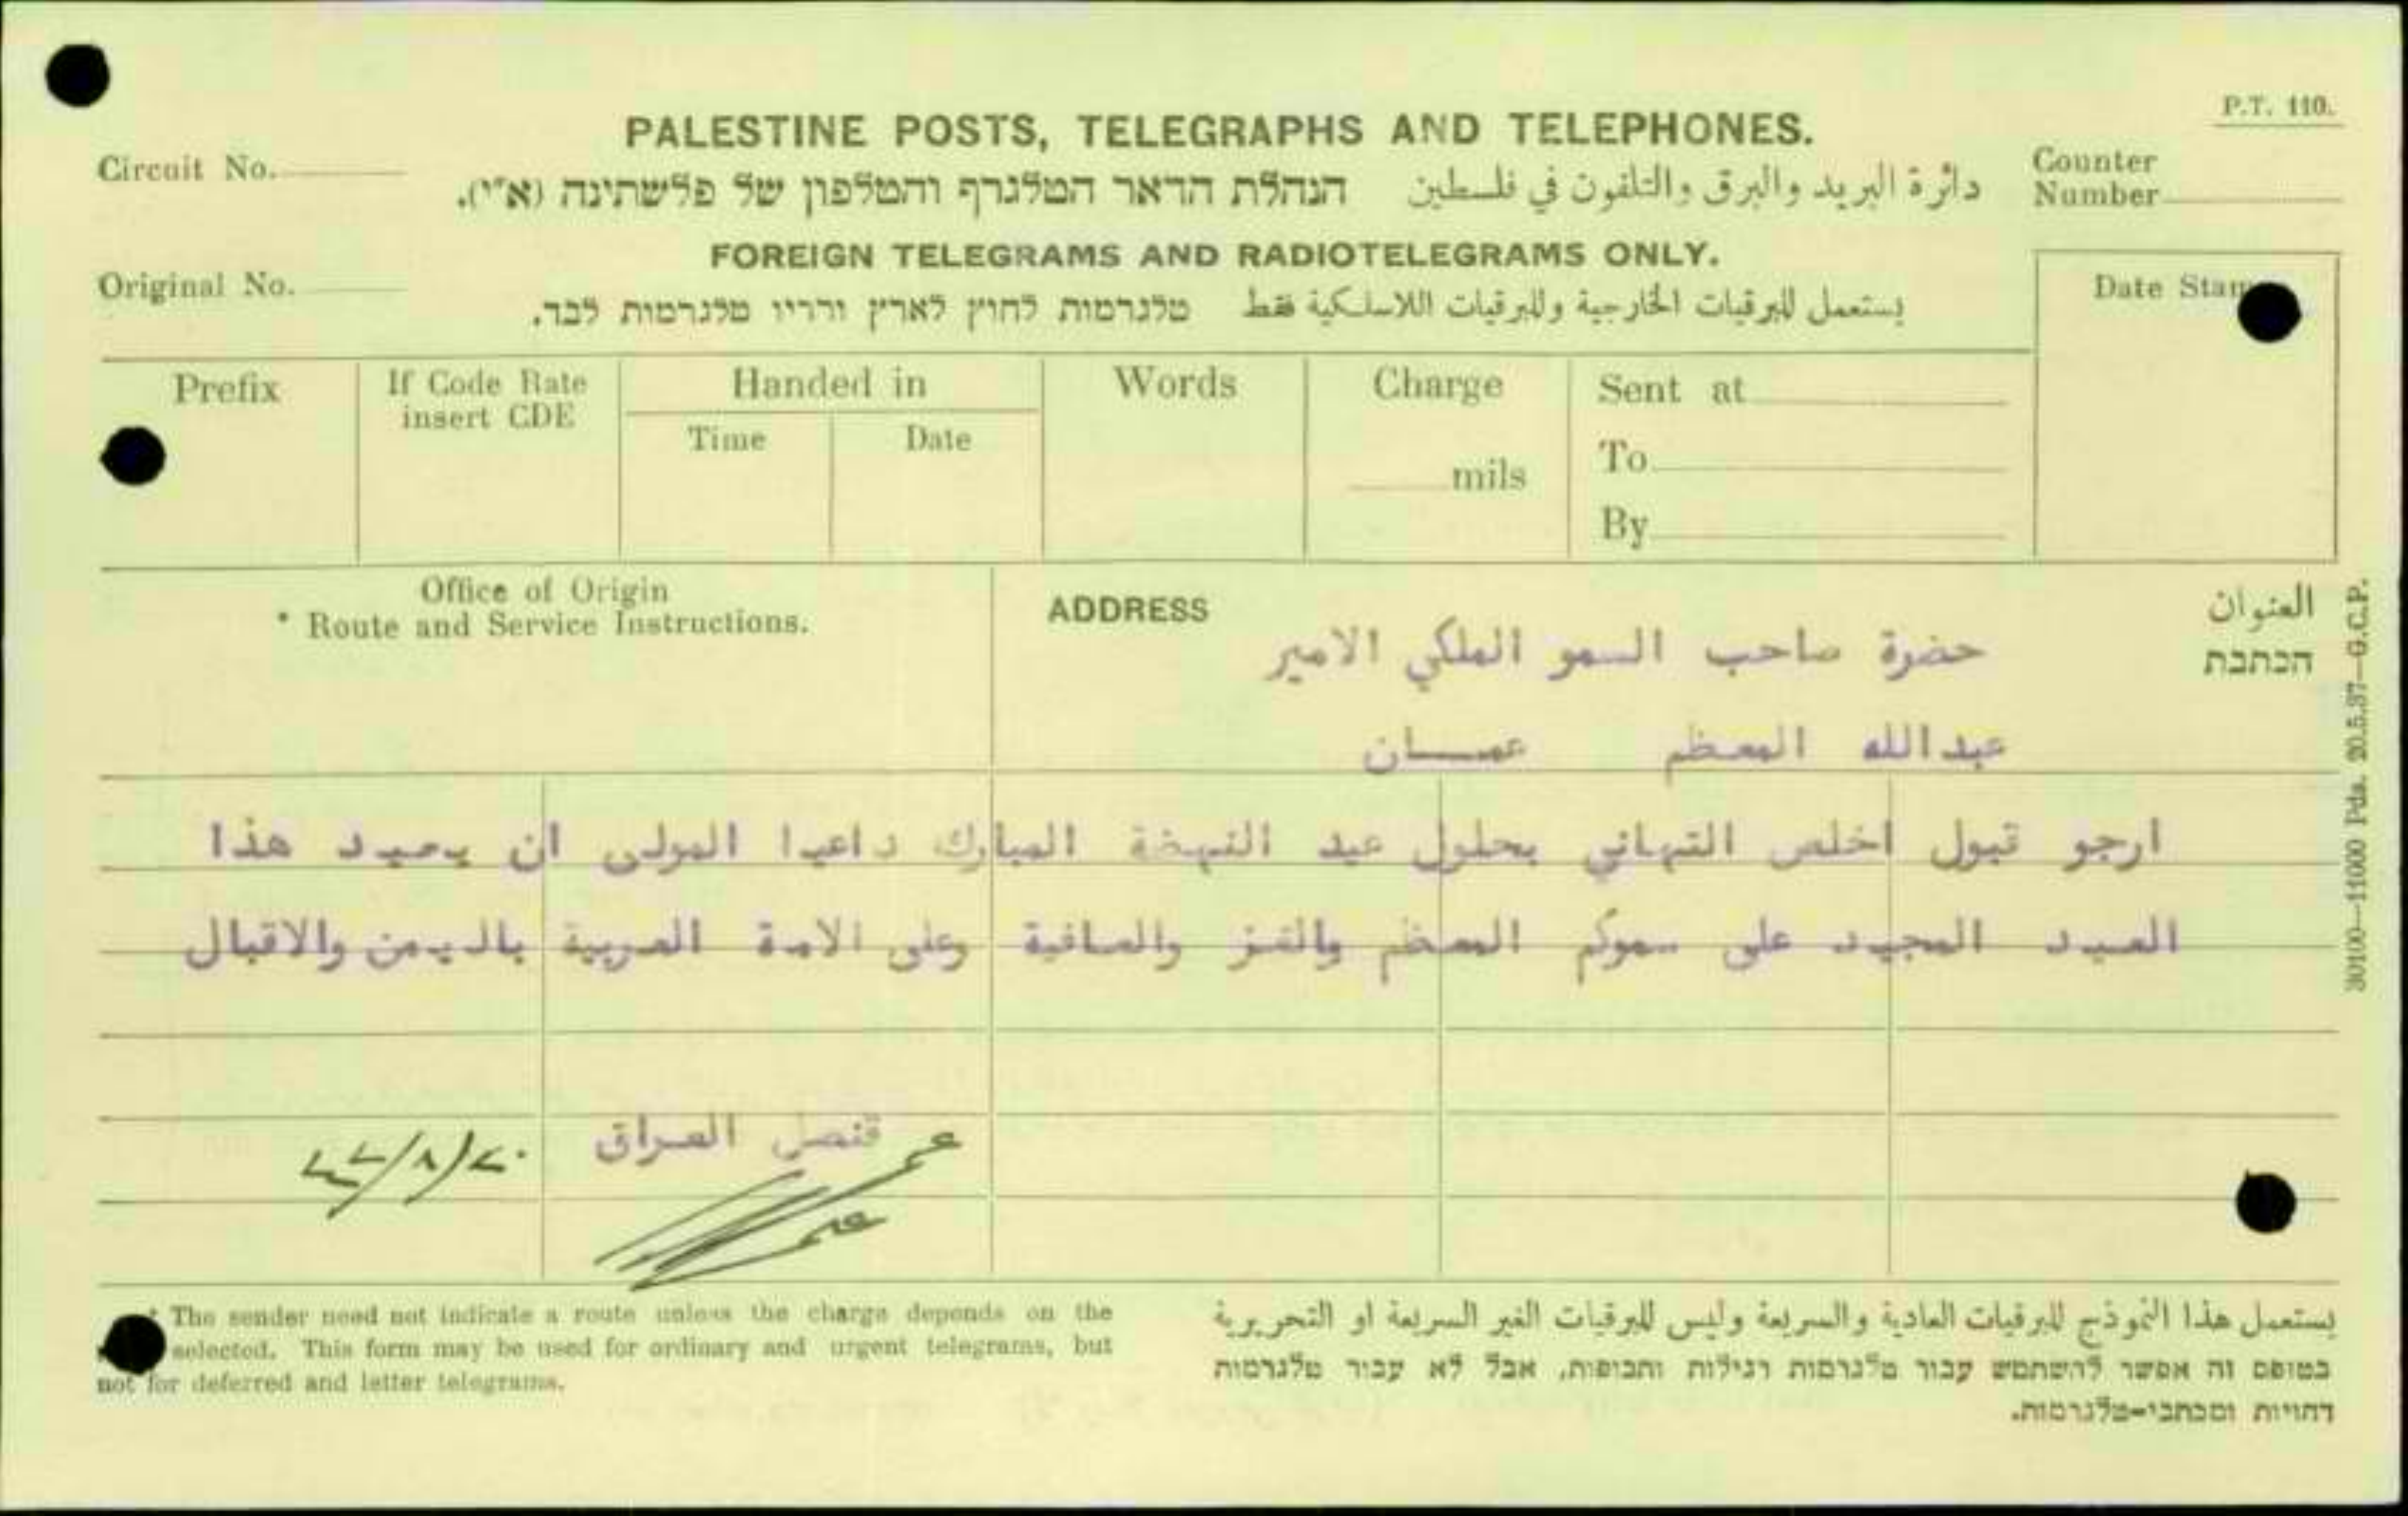 P.T. 110.
PALESTINE POSTS, TELEGRAPHS AND TELEPHONES.
Circuit No.
دائرة البريد والبرق والتلفون في فلسطين הנהלת הדאר הטלגרף והטלפון של פלשתינה (א"י).
Counter
Number
FOREIGN TELEGRAMS AND RADIOTELEGRAMS ONLY.
Original No.
يستعمل للبرقيات الخارجية وللبرقيات اللاسلكية فقط טלגרמות לחוץ לארץ ורדיו טלגרמות לבד.
Date
Prefix
If Code Rate
insert CDE
Handed in
Time
Date
Words
Charge
mils
Sent at
To
By
Office of Origin
* Route and Service Instructions.
ADDRESS
العنوان
הכתבת
حضرة صاحب السمو الملكي الامير
عبدالله المعظم عمـــان
ارجو قبول اخلص التهاني بحلول عيد النهضة المبارك داعيا المولى ان يعيد هذا
العيد المجيد على سموكم المعظم والعز والعافية وعلى الامة العربية باليمن والاقبال
قنصل العراق
30100—11000 Pds. 20.5.37—G.C.P.
* The sender need not indicate a route unless the charge depends on the
selected. This form may be used for ordinary and urgent telegrams, but
not for deferred and letter telegrams.
يستعمل هذا النموذج للبرقيات العادية والسريعة وليس للبرقيات الغير السريعة او التحريرية
בטופס זה אפשר להשתמש עבור טלגרמות רגילות ותכופות, אבל לא עבור טלגרמות
דחויות ומכתבי-טלגרמות.